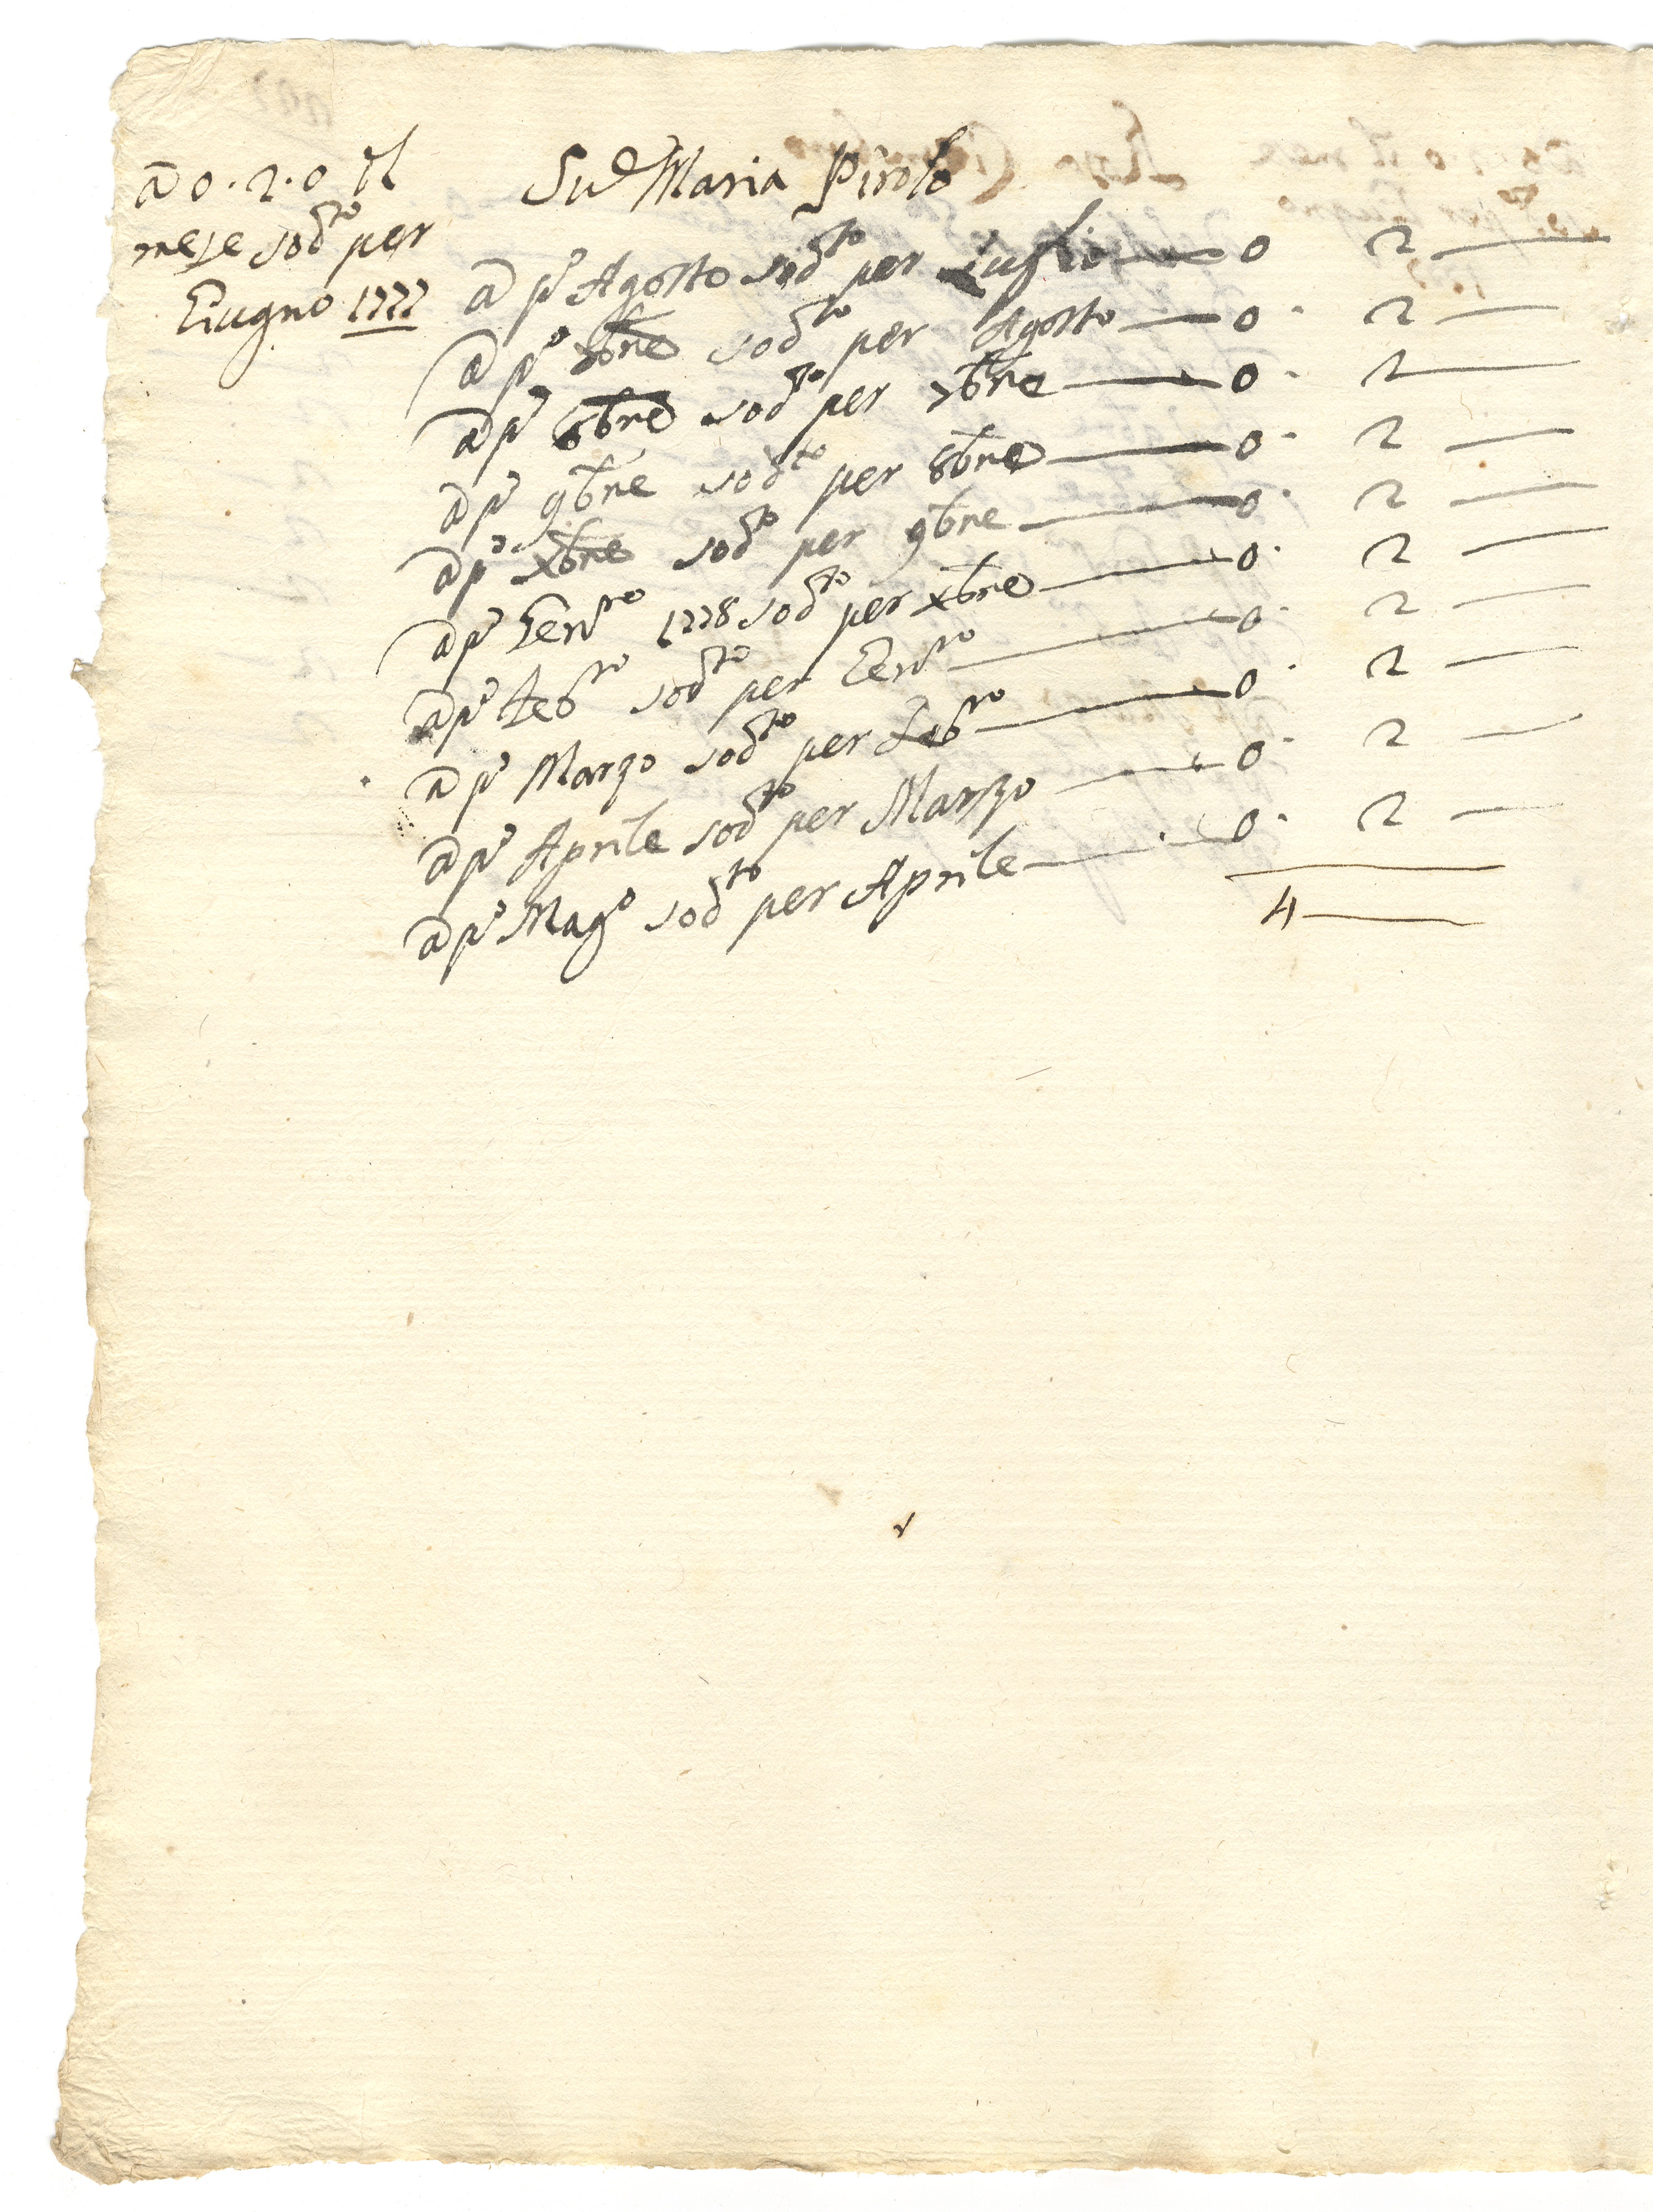 a 0.2.0 il
mese sod.to per
Giugno 1777
Sud.a Maria Pirolo
a p.o Agosto sod.to per Luglio — 0 2 —
a p.o 7bre sod.to per Agosto — 0 · 2 —
a p.o 8bre sod.to per 7bre — 0 · 2 —
a p.o 9bre sod.to per 8bre — 0 · 2 —
a p.o xbre sod.to per 9bre — 0 · 2 —
a p.o Gen.ro 1778 sod.to per xbre — 0 · 2 —
a p.o Feb.ro sod.to per Gen.ro — 0 · 2 —
a p.o Marzo sod.to per Feb.ro — 0 · 2 —
a p.o Aprile sod.to per Marzo — 0 · 2 —
a p.o Mag.o sod.to per Aprile — 0 · 2 —
4 —